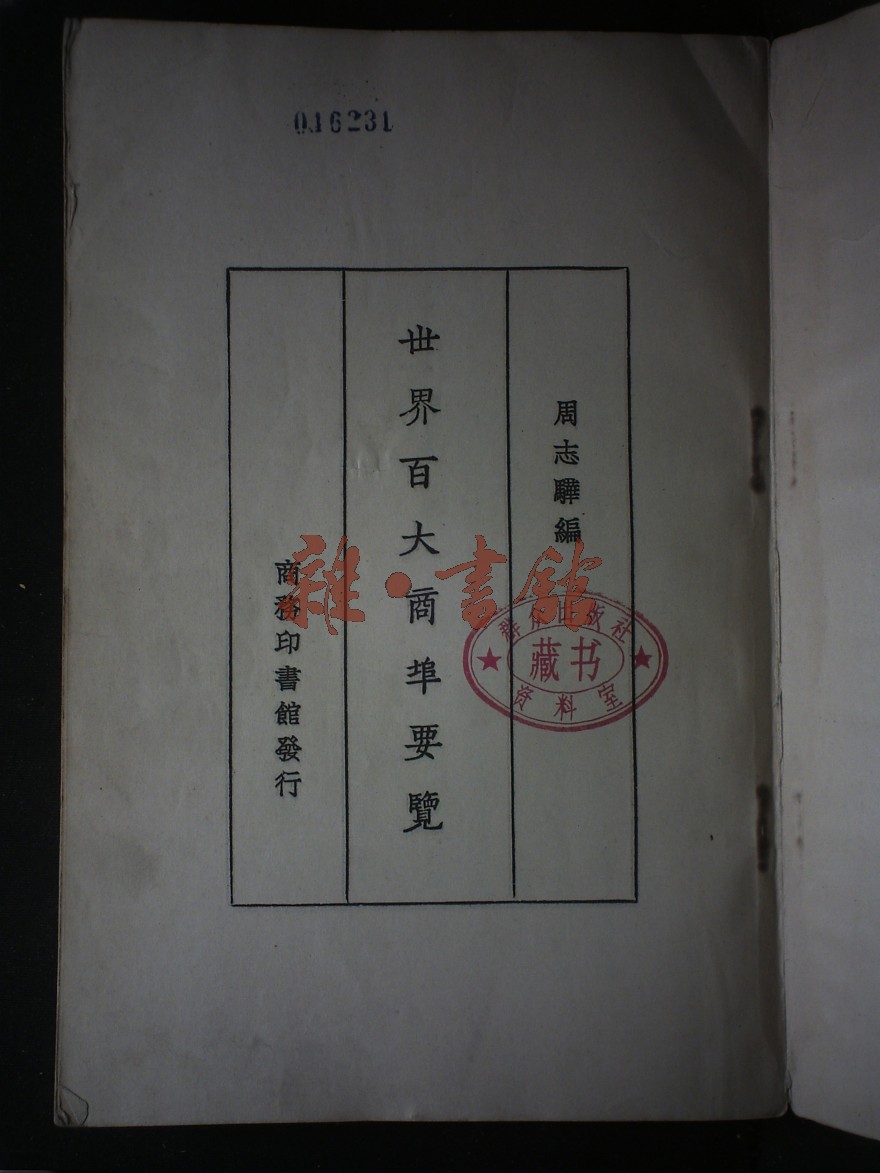 016231
周志驊編
世界百大商埠要覽
商務印書館發行
雜·書館
群众出版社
藏书
资料室